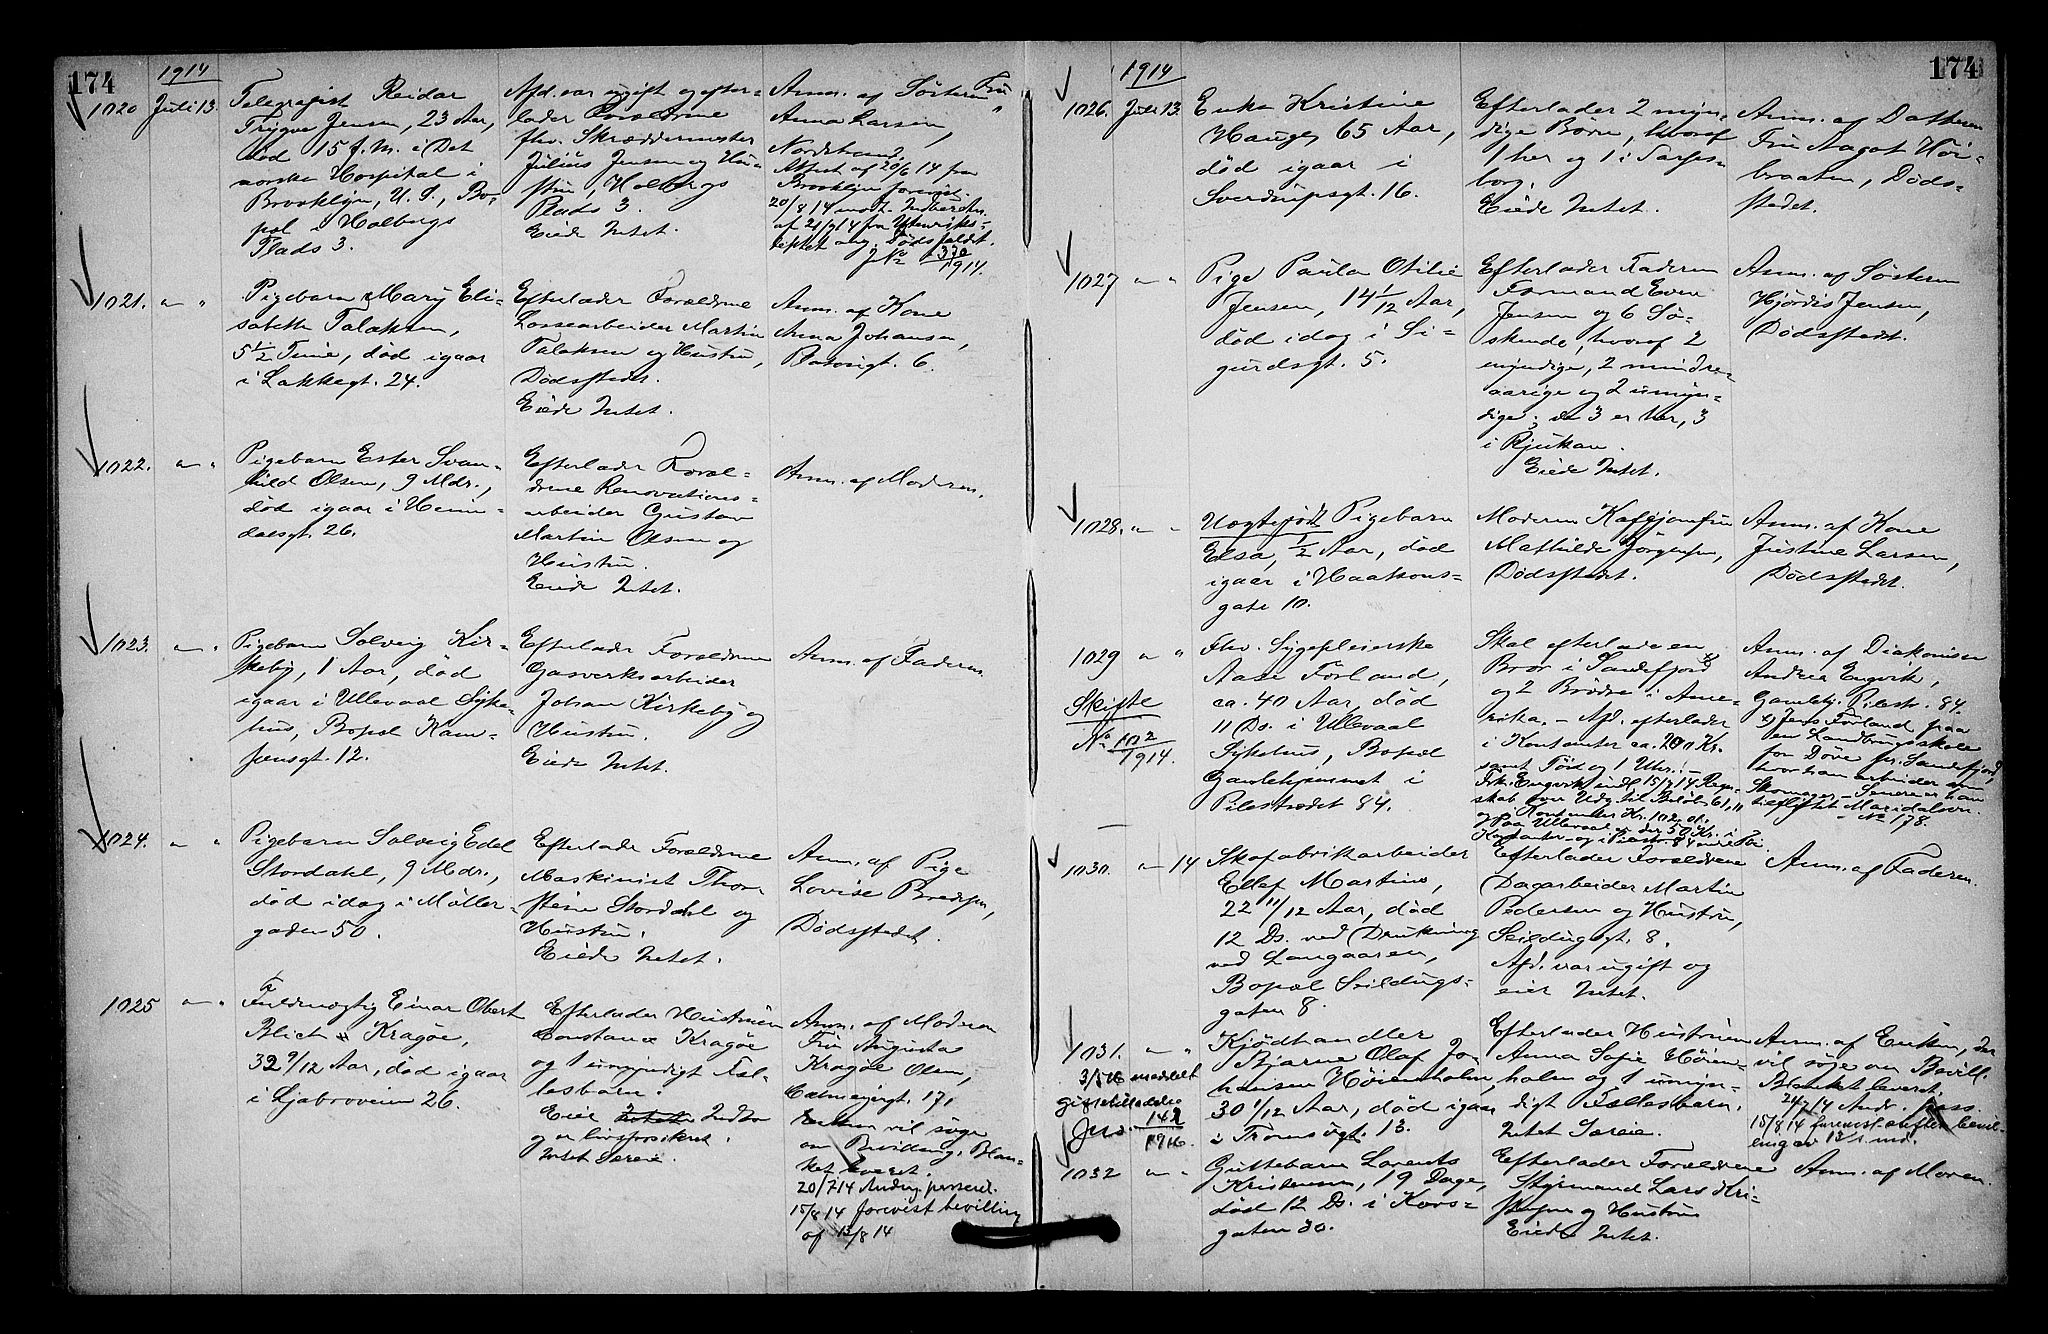 174
1914
1020 Juli 13.
Telegrafist Reidar
Trygve Jensen, 23 Aar,
død 15 f. M. i Det
norske Hospital i
Brooklyn, U. S., Bo-
pæl i Holbergs
Plads 3.
Afd. var ugift og efter-
lader Forældrene
fhv. Skræddermester
Julius Jensen og Hu-
stru, Holbergs
Plads 3.
Eiede Intet.
Anm. af Søsteren Fru
Anna Larsen,
Nordstrand.
Attest af 20/6 14 fra
Brooklyn forevist.
20/8 14 modt. Indberetn.
af 21/9 14 fra Utenriks-
dep.tet ang. Dødsfaldet.
J No 330/1914.
1021. " "
Pigebarn Mary Eli-
sabeth Talaksen,
5 1/2 Time, død igaar
i Lakkegt. 24.
Efterlader Forældrene
Lossearbeider Martin
Talaksen og Hustru,
Dødsstedet.
Eiede Intet.
Anm. af Kone
Anna Johansen,
6.
1022. " "
Pigebarn Ester Svan-
hild Olsen, 9 Mdr.,
død igaar i Heim-
dalsgt. 26.
Efterlader Foræl-
drene Renovations-
arbeider Gustav
Martin Olsen og
Hustru.
Eiede Intet.
Anm. af Moderen.
1023. " "
Pigebarn Solveig Kir-
keby, 1 Aar, død
igaar i Ullevaal Syke-
hus, Bopæl Kam-
pensgt. 12.
Efterlader Forældrene
Gasverksarbeider
Johan Kirkeby og
Hustru.
Eiede Intet.
Anm. af Faderen.
1024. " "
Pigebarn Solveig Edel
Stordahl, 9 Mdr.,
død idag i Møller-
gaden 50.
Efterlader Forældrene
Maskinist Thor-
stein Stordahl og
Hustru.
Eiede Intet.
Anm. af Pige
Lovise Bredesen,
Dødsstedet.
1025 " "
Fuldmægtig Einar Obert
Blich Kragøe,
32 9/12 Aar, død igaar
i Ljabroveien 26.
Efterlader Hustruen
Constance Kragøe
og 1 umyndigt Fæl-
lesbarn.
Eier Indbo
og er livsforsikret.
Intet Særeie.
Anm. af Moderen
Fru Augusta
Kragøe Olsen,
Calmeyergt. 171
Enken vil søge
om Bevilling. Blan-
ket leveret.
20/7 14 Andrg. passeret.
15/8 14 forevist bevilling
af 13/8 14
174
1914
1026. Juli 13.
Enke Kristine
Hauge, 65 Aar,
død igaar i
Sverdrupsgt. 16.
Efterlader 2 myn-
dige Børn, hvoraf
1 her og 1 i Sarps-
borg.
Eiede Intet.
Anm. af Datteren
Fru Aagot Høi-
braaten, Døds-
stedet.
1027 " "
Pige Paula Otilie
Jensen, 14 1/12 Aar,
død idag i Si-
gurdsgt. 5.
Efterlader Faderen
Formand Even
Jensen og 6 Sø-
skende, hvoraf 2
myndige, 2 mindre-
aarige og 2 umyn-
dige; de 3 er her, 3
i Rjukan.
Eiede Intet.
Anm. af Søsteren
Hjørdis Jensen,
Dødsstedet.
1028. " "
Uægtefødt Pigebarn
Elsa, 1/2 Aar, død
igaar i Haakons-
gate 10.
Moderen Kafejomfru
Mathilde Jørgensen,
Dødsstedet.
Anm. af Kone
Justine Larsen,
Dødsstedet.
1029 " "
Skifte
No 102/1914.
Fhv. Sygepleierske
Aase Førland,
ca. 40 Aar, død
11 Ds. i Ullevaal
Sykehus, Bopæl
Gamlehjemmet i
Pilestrædet 84.
Skal efterlade en
Bror i Sandefjord x)
og 2 Brødre i Ame-
rika. - Afd. efterlader
i Kontanter ca. 200 Kr.
samt Tøi og 1 Uhr. -
Frk. Engvik indl. 15/7 14 Regn-
skab over Udg. til Beløb 61,11
og Kontanter Kr. 102,01.
Paa Ullevaal er der 50 Kr. i
Kontanter og i Pilestr. 84
Anm. af Diakonisse
Andrea Engvik,
Gamlehj. Pilestr. 84.
x) Jens Førland paa
en Landbrugsskole
for Døve pr. Sandefjord,
hvor han arbeider som
Skomager. - Senere er han
tilflyttet Maridalsvn.
No 178.
1030. " 14
Skofabrikarbeider
Ellef Martins,
22 11/12 Aar, død
12 Ds. ved Drukning
ved Langaaren,
Bopæl Seildugs-
gaten 8.
Efterlader Forældrene
Dagarbeider Martin
Pedersen og Hustru,
Seildugsgt. 8.
Afd. var ugift og
eier Intet.
Anm. af Faderen.
1031. " "
3/5 16 meddelt
giftetilladelse
Jno. 142/1916.
Kjødhandler
Bjarne Olaf Jo-
hansen Høienholm,
30 1/12 Aar, død igaar
i Tromsøgt. 13.
Efterlader Hustruen
Anna Sofie Høien-
holm og 1 umyn-
digt Fællesbarn.
Intet Særeie.
Anm. af Enken, der
vil søge om Bevill.
Blanket leveret.
24/7 14 Andr. pass.
15/8 14 forevist skifte bevil-
ling av 13 s. md.
1032 " "
Guttebarn Lorents
Kristensen, 19 Dage,
død 12 Ds. i Kors-
gaten 30.
Efterlader Forældrene
Styrmand Lars Kri-
stensen og Hustru
Eiede Intet.
Anm. af Moren.